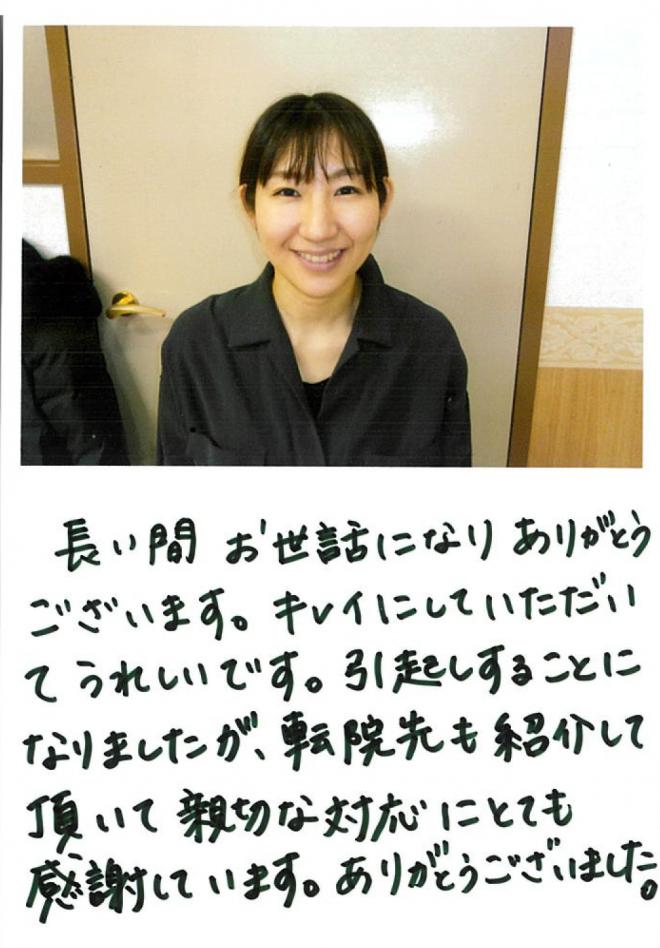 長い間 お世話になり ありがとう
ございます。キレイにしていただい
てうれしいです。引起しすることに
なりましたが、転院先も紹介して
頂いて親切な対応にとても
感謝しています。ありがとうございました。